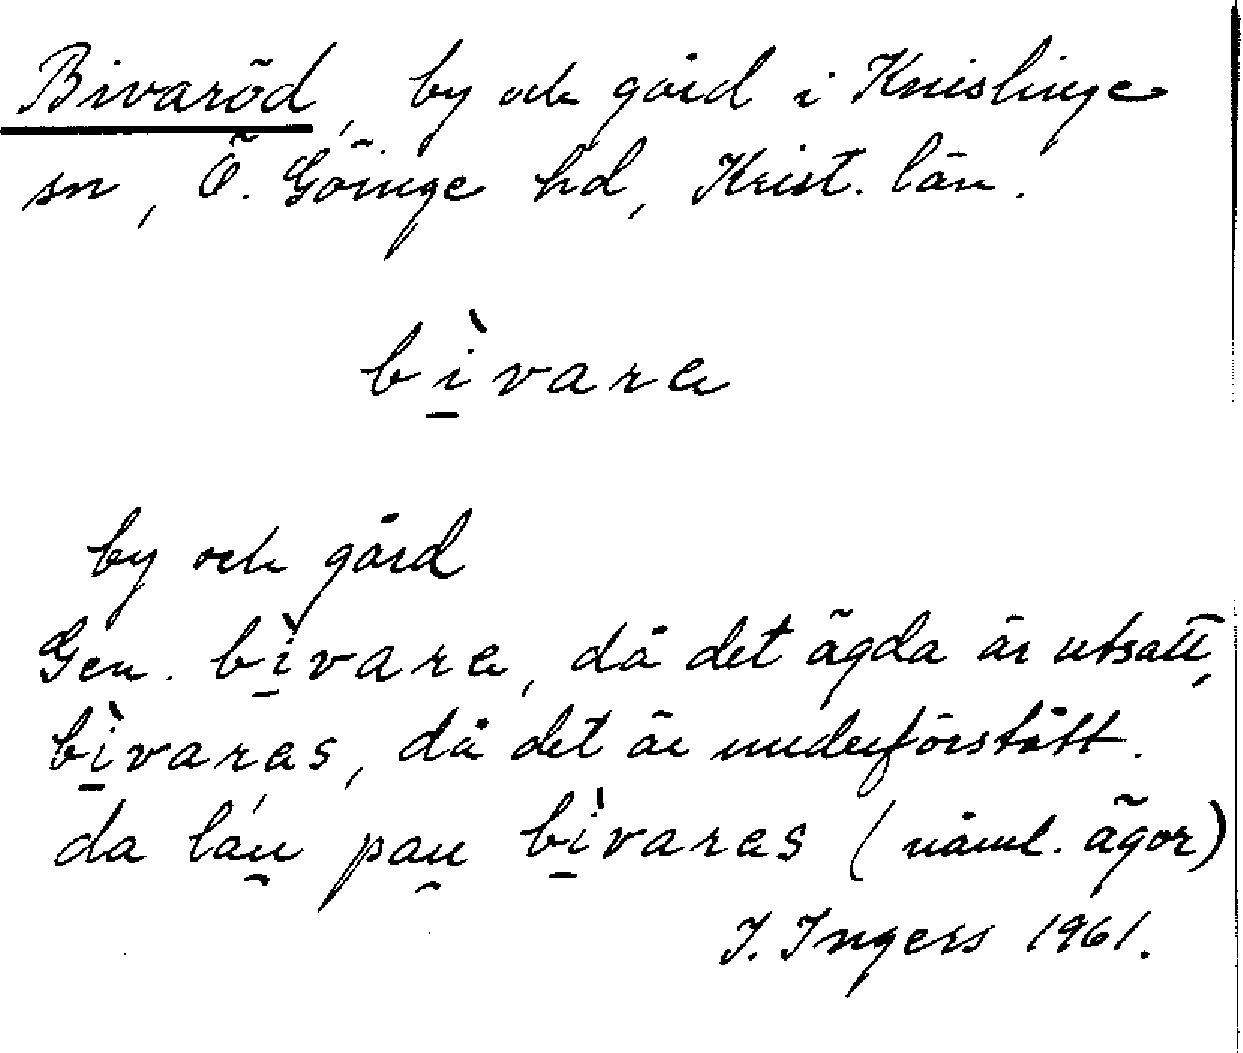 Bivaröd, by och gård i Knislinge
sn, Ö. Göinge hd, Krist. län.
bì̠varɐ
by och gård
Gen. bì̠varɐ, då det ägda är utsatt,
bì̠varɐs, då det är underförstått.
da láu̠ pau̠ bì̠varɐs (näml. ägor)
I. Ingers 1961.